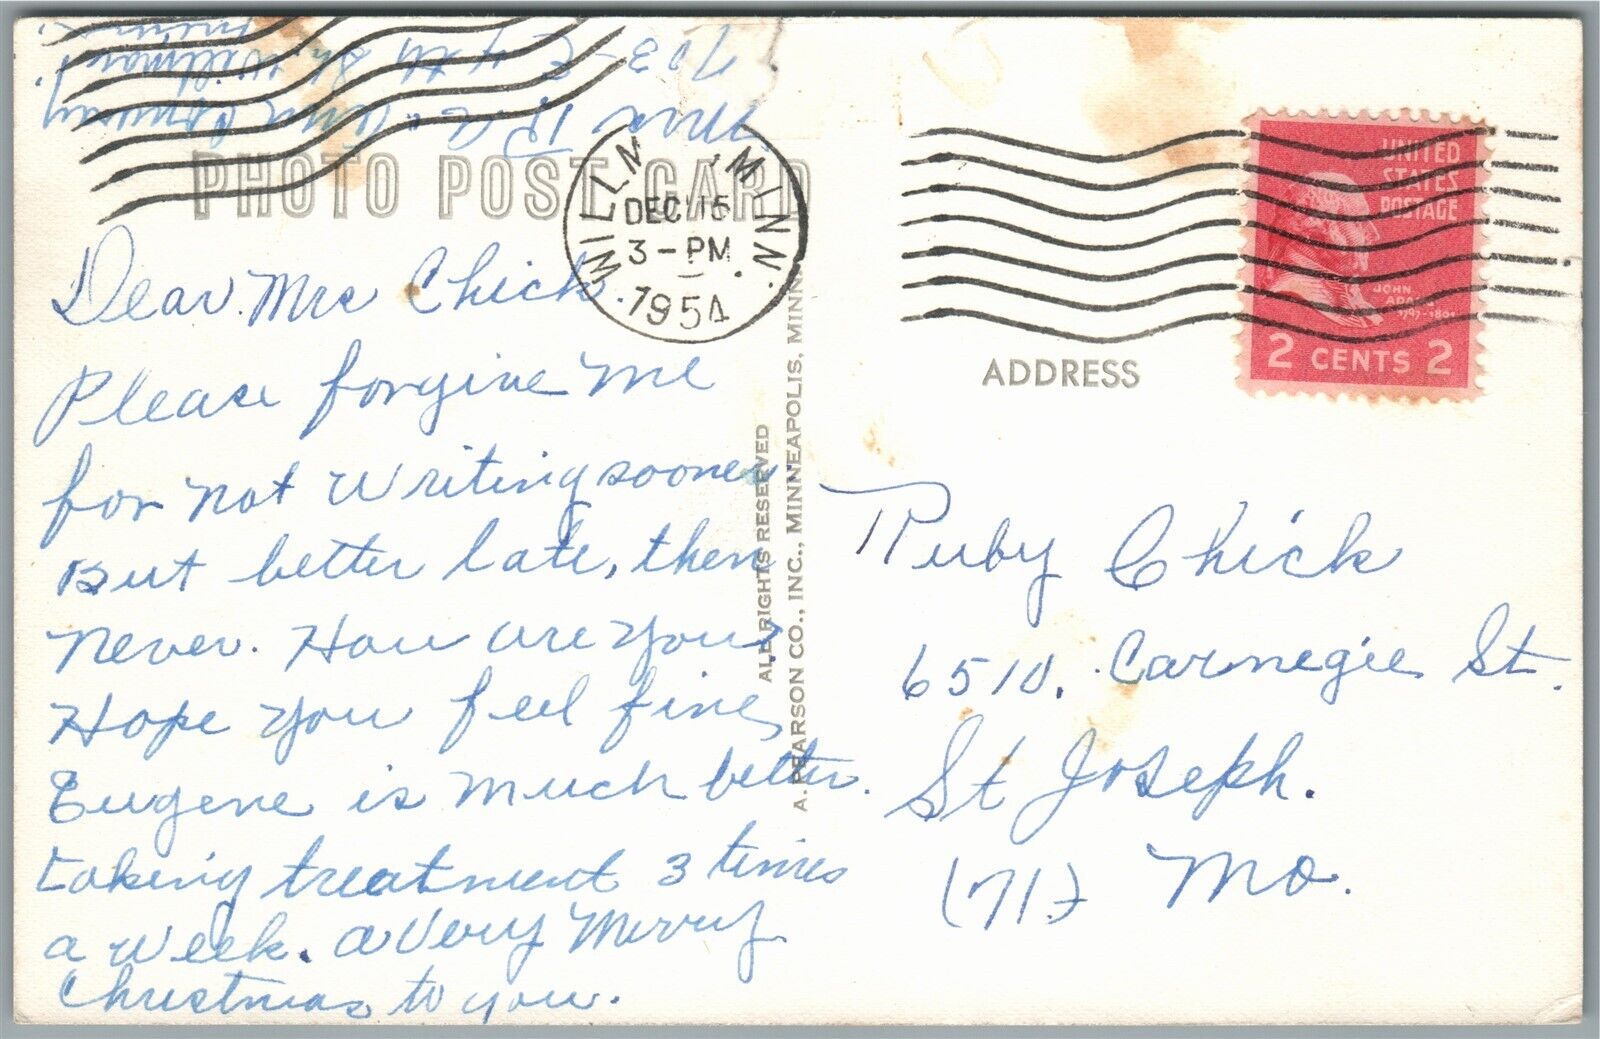 Mrs P. A. Conway
703-E 4th St. Willmar
Minn.
PHOTO POST CARD
WILLMAR, MINN.
DEC 15
3-PM
1954
UNITED
STATES
POSTAGE
JOHN
ADAMS
1797-1801
2 CENTS 2
ADDRESS
Dear Mrs Chick.
Please forgive me
for not writing sooner.
But better late, then
never. How are you,
Hope you feel fine,
Eugene is much better.
taking treatment 3 times
a week. a Very Merry
Christmas to you.
ALL RIGHTS RESERVED
A. PEARSON CO., INC., MINNEAPOLIS, MINN.
Ruby Chick
6510. Carnegie St.
St Joseph.
(71) Mo.